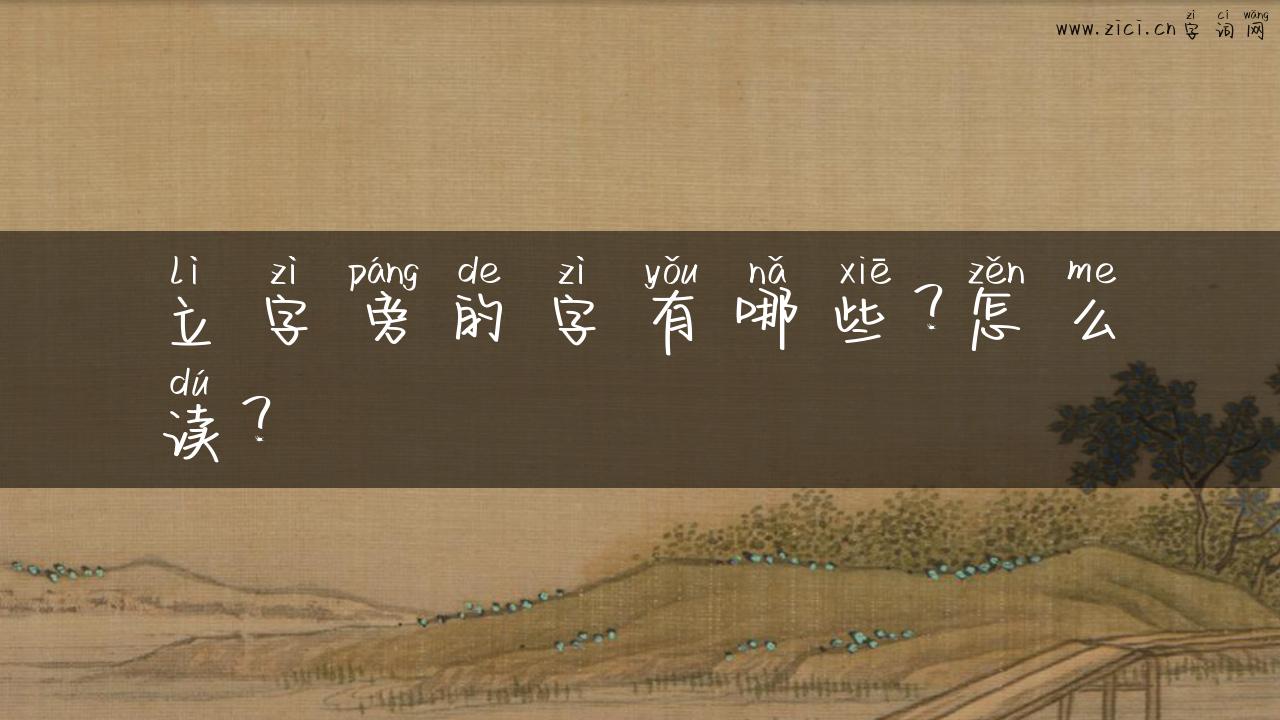 zì cí wǎng
www.zici.cn字词网
lì zì páng de zì yǒu nǎ xiē zěn me
立字旁的字有哪些?怎么
dú
读?